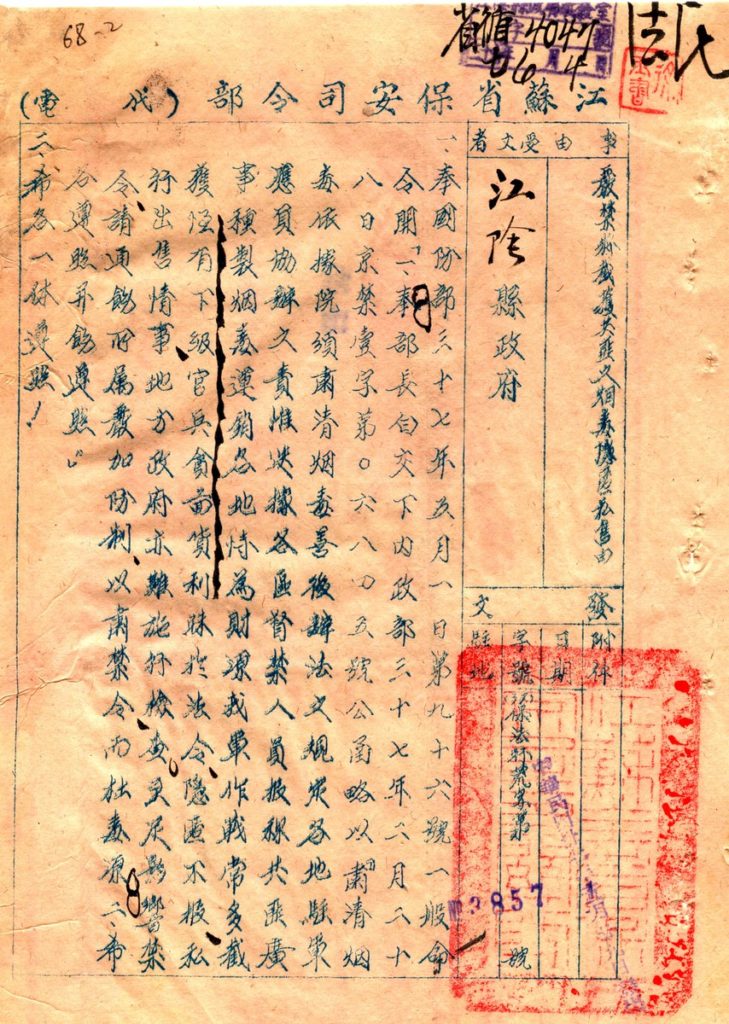 68-2
江蘇省保安司令部(代電)
事由
嚴禁私截獲共匪之烟毒隱匿私售由
受文者
江陰縣政府
發文
附件
日期
字號
號
駐地
3857
一、奉國防部三十七年五月一日第九十六號一般命
令開「一、奉部長白交下內政部三十七年二月二十
八日京禁壹字第0六八四五號公函略以肅清烟
毒依據院頒肅清烟毒善後辦法之規定各地駐軍
應負協辦之責惟迭據各區督禁人員報稱共匪廣
事種製烟毒運銷各地恃為財源我軍作戰常多截
獲陘有下級官兵貪啚貨利昧於法令隱匿不報私
行出售情事地方政府亦難施行檢查更足影響禁
令請通飭所屬嚴加防制以肅禁令而杜毒源二、希
各遵照并飭遵照」
二、希各一体遵照!